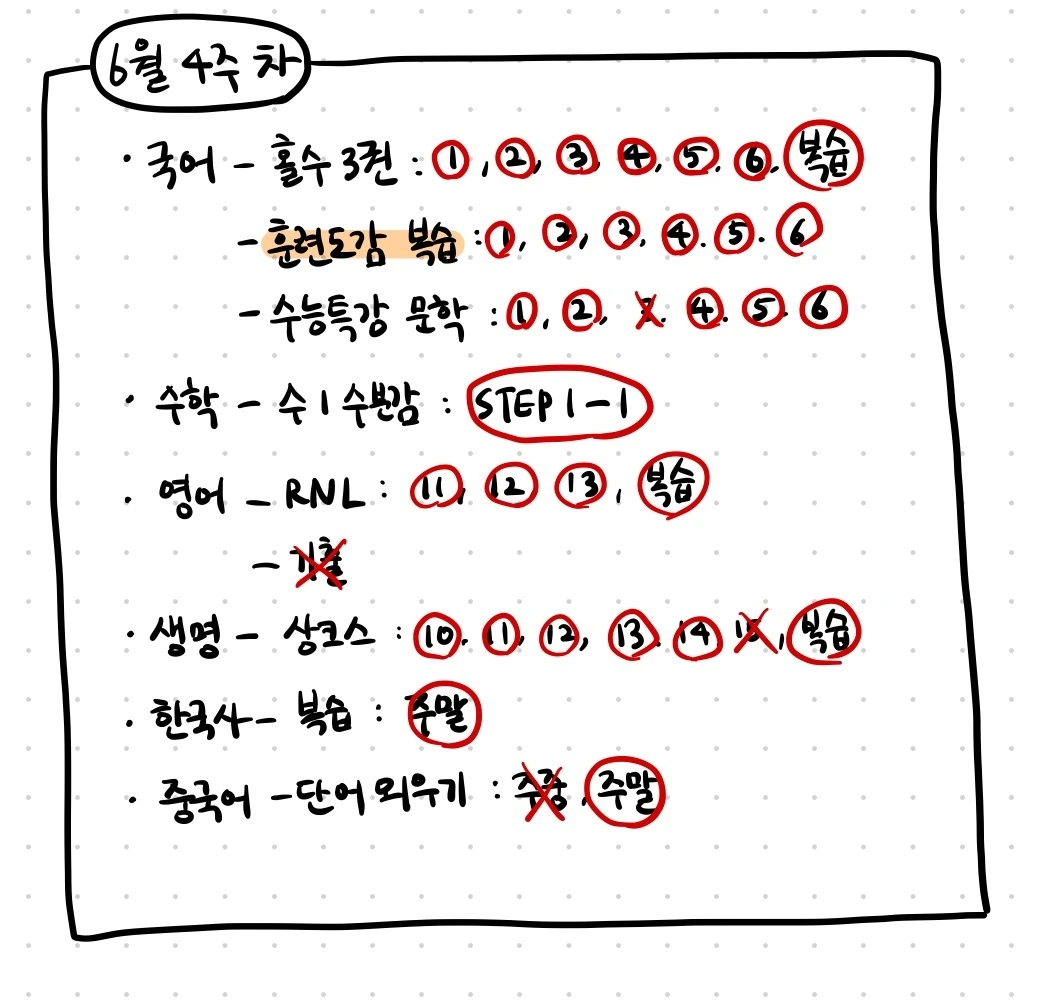 6월 4주 차
· 국어 - 홀수 3권 : 1, 2, 3, 4, 5, 6, 복습
- 훈련도감 복습 : 1, 2, 3, 4, 5, 6
- 수능특강 문학 : 1, 2, 3, 4, 5, 6
· 수학 - 수1 수분감 : STEP 1-1
· 영어 - RNL : 11, 12, 13, 복습
- 기출
· 생명 - 상크스 : 10, 11, 12, 13, 14, 15, 복습
· 한국사 - 복습 : 주말
· 중국어 - 단어 외우기 : 주중, 주말